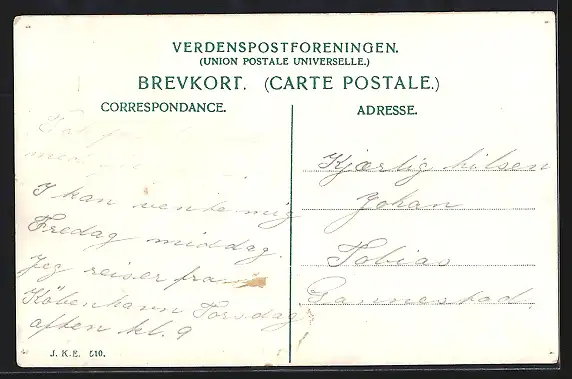 VERDENSPOSTFORENINGEN.
(UNION POSTALE UNIVERSELLE.)
BREVKORT. (CARTE POSTALE.)
CORRESPONDANCE.
ADRESSE.
I kan vente mig
Fredag middag.
Jeg reiser fra
København Torsdag
aften kl. 9
Kjærlig hilsen
Johan
Tobias
J. K. E. 510.